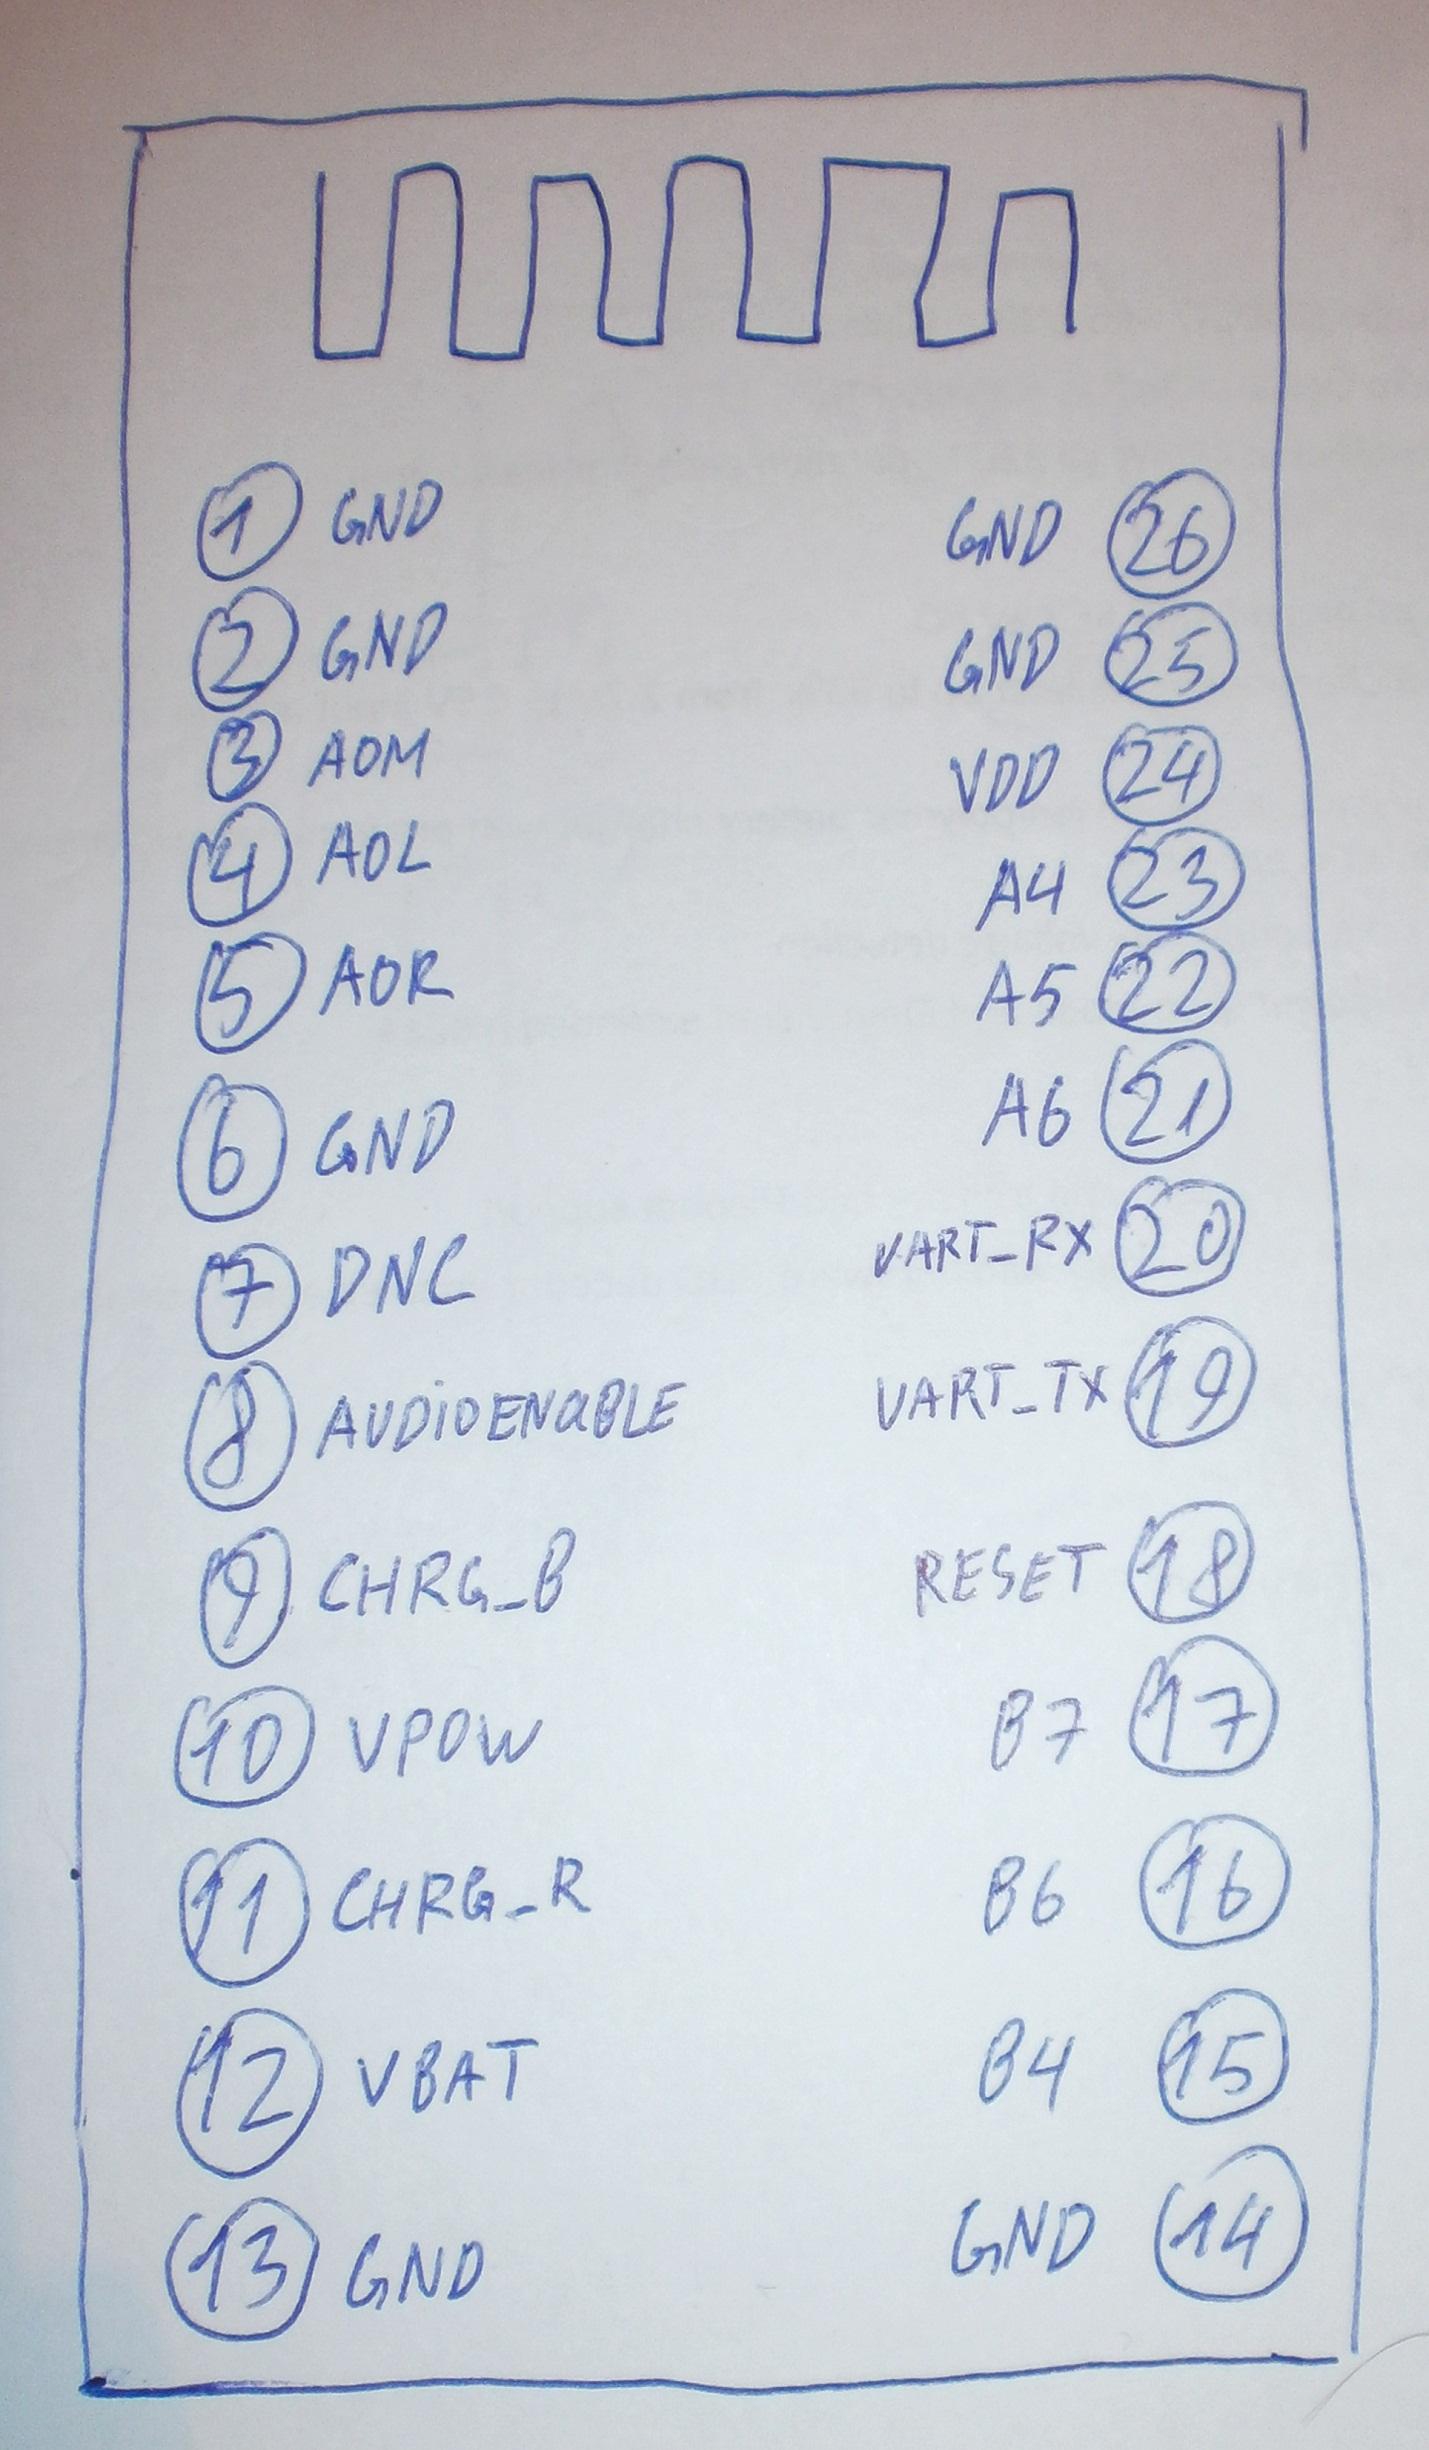 1 GND
2 GND
3 AOM
4 AOL
5 AOR
6 GND
7 DNC
8 AUDiOENaBLE
9 CHRG_B
10 VPOW
11 CHRG_R
12 VBAT
13 GND
GND 26
GND 25
VDD 24
A4 23
A5 22
A6 21
UART_RX 20
UART_TX 19
RESET 18
B7 17
B6 16
B4 15
GND 14